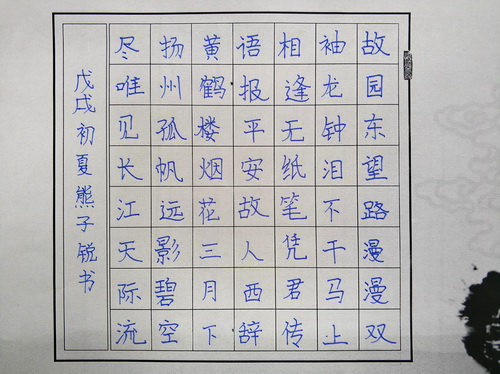 故园东望路漫漫双
袖龙钟泪不干马上
相逢无纸笔凭君传
语报平安故人西辞
黄鹤楼烟花三月下
扬州孤帆远影碧空
尽唯见长江天际流
戊戌初夏熊子锐书